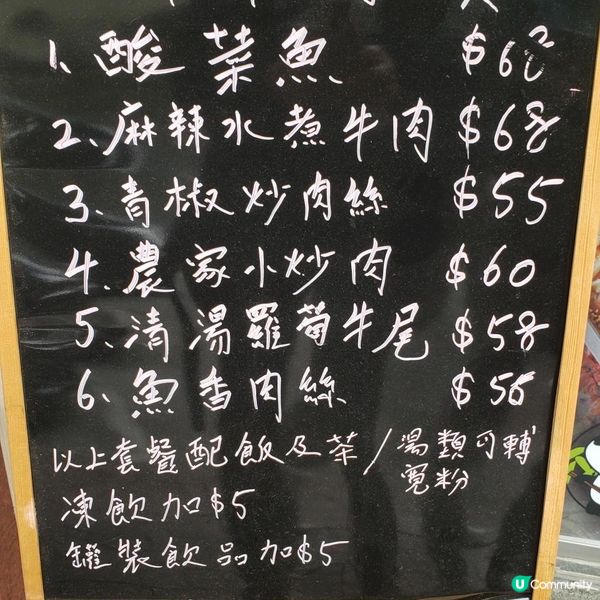 1、酸菜魚 $60
2、麻辣水煮牛肉 $68
3、青椒炒肉絲 $55
4、農家小炒肉 $60
5、清湯羅蔔牛尾 $58
6、魚香肉絲 $56
以上套餐配飯及茶/湯類可轉寬粉
凍飲加$5
罐裝飲品加$5
U Community